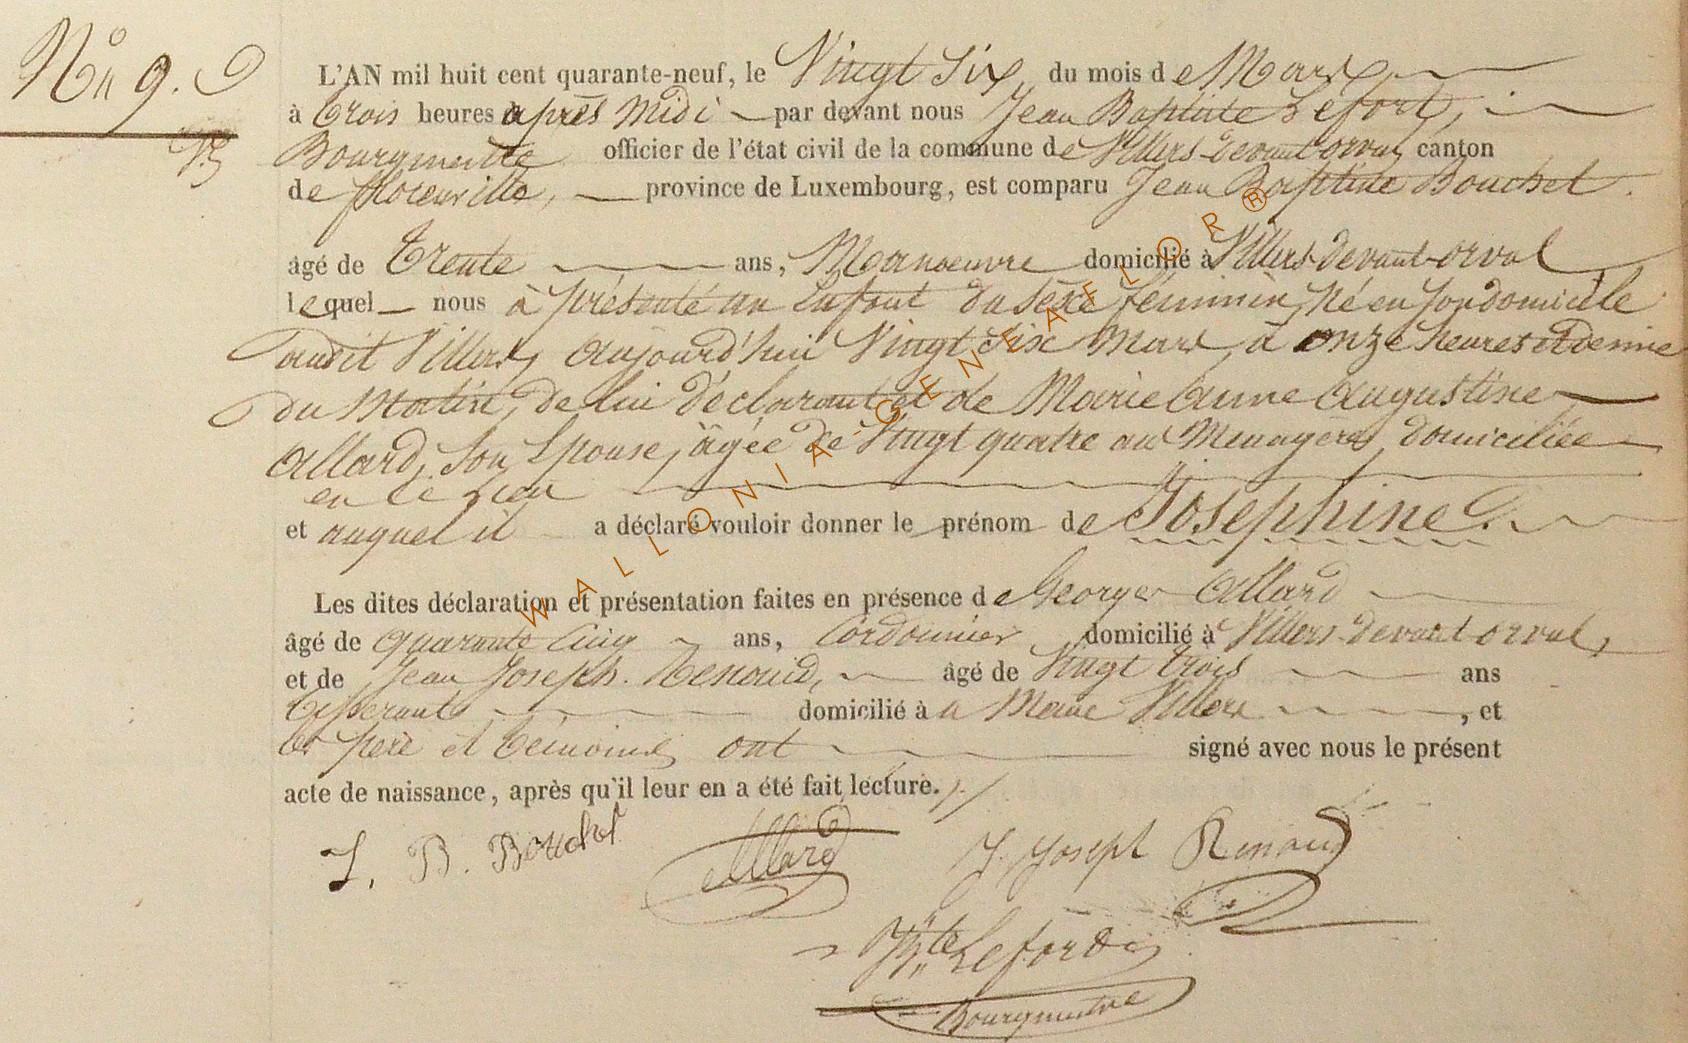 No 9.
L'AN mil huit cent quarante-neuf, le Vingt Six, du mois de Mars,
à trois heures après midi par devant nous Jean Baptiste Lefort,
Bourgmestre officier de l'état civil de la commune de Villers-devant-orval, canton
de florenville, province de Luxembourg, est comparu Jean Baptiste Bouchet.
âgé de trente ans, Manoeuvre domicilié à Villers-devant-orval
lequel nous à présenté un Enfant du sexe féminin, Né en son domicile
audit Villers, aujourd'hui Vingt Six Mars, à onze heures et demie
du Matin, de lui déclarant et de Marie Anne Augustine
Allard, Son Epouse, âgée de Vingt quatre ans Menagere, domiciliée
en ce Lieu
et auquel il a déclaré vouloir donner le prénom de Josephine.
Les dites déclaration et présentation faites en présence de George Allard
âgé de quarante Cinq ans, Cordonnier domicilié à Villers-devant orval,
et de Jean Joseph. Renauld, âgé de Vingt trois ans
tisserant domicilié à a Meme Villers, et
les père et témoins ont signé avec nous le présent
acte de naissance, après qu'il leur en a été fait lecture.
J. B. Bouchet Allard J. Joseph Renaud
Lefort
Bourgmestre
WALLONIA-GENEAFLOR®